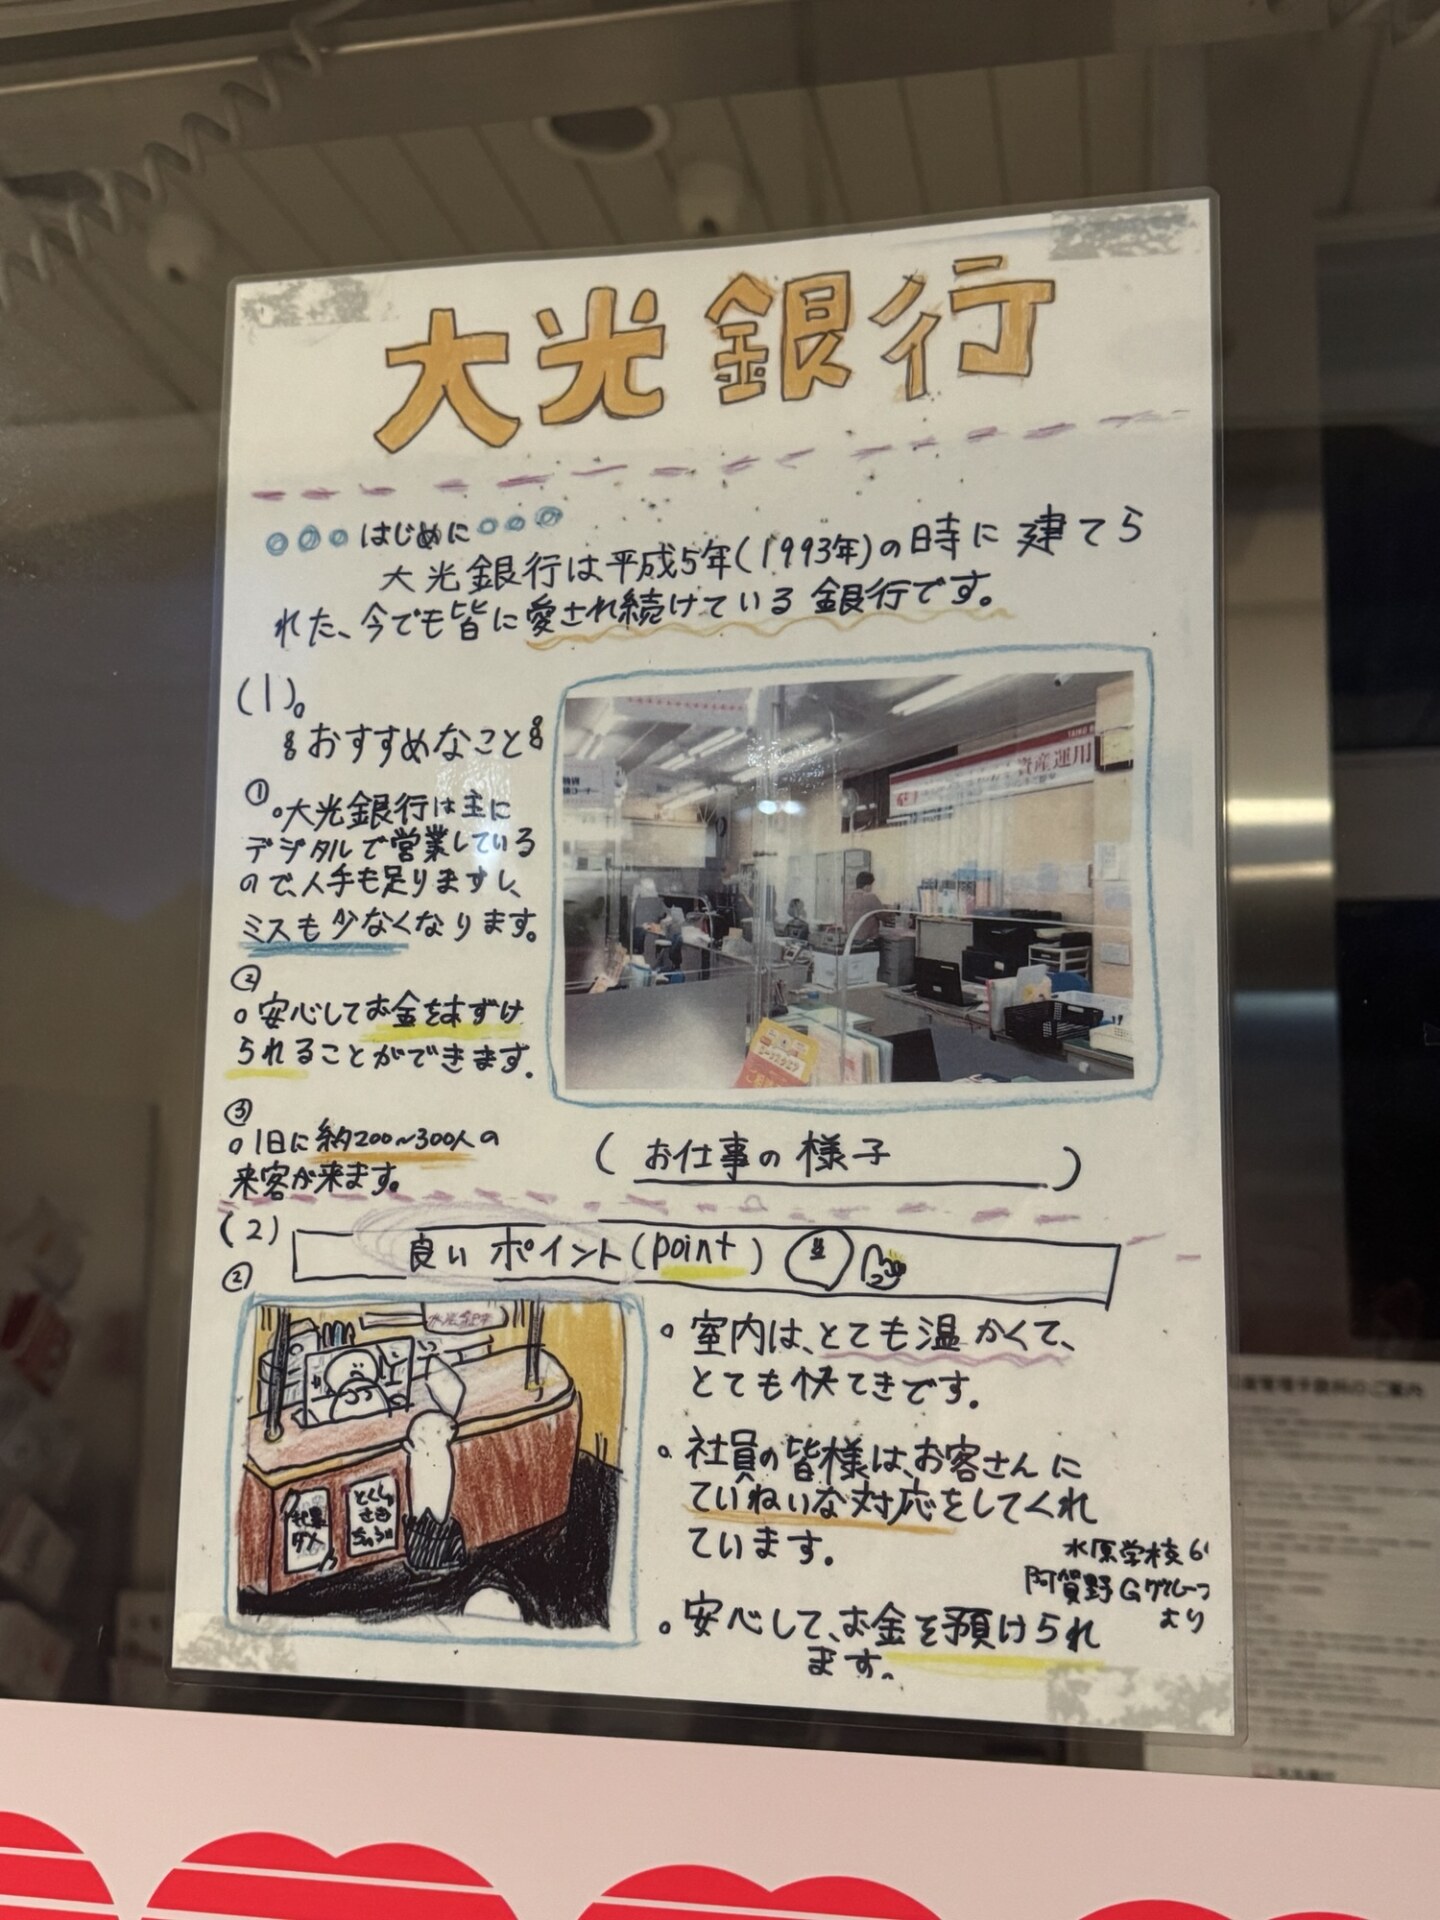 大光銀行
はじめに
大光銀行は平成5年(1993年)の時に建てら
れた、今でも皆に愛され続けている銀行です。
(1)。
おすすめなこと
①
。大光銀行は主に
デジタルで営業している
ので、人手も足りますし、
ミスも少なくなります。
資産運用
②
。安心してお金をあずけ
られることができます。
③
。1日に約200~300人の
来客が来ます。
(お仕事の様子)
(2)
良い ポイント(point)
②
。室内は、とても温かくて、
とても快てきです。
。社員の皆様は、お客さんに
ていねいな対応をしてくれ
ています。
水原学校6
阿賀野Gグループ
より
。安心して、お金を預けられ
ます。